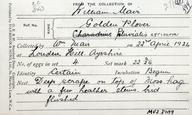 FROM THE COLLECTION OF
William Mair
Golden Plover
Charadrius Pluvialis
Collected by W. Mair on 22nd April 1926
at Loudon Hill Ayrshire
No. of eggs in set 4 Set mark 22/26
Identity Certain Incubation Begun
Nest Deep scrape on top of Moss hag
with a few heather stems bird
flushed